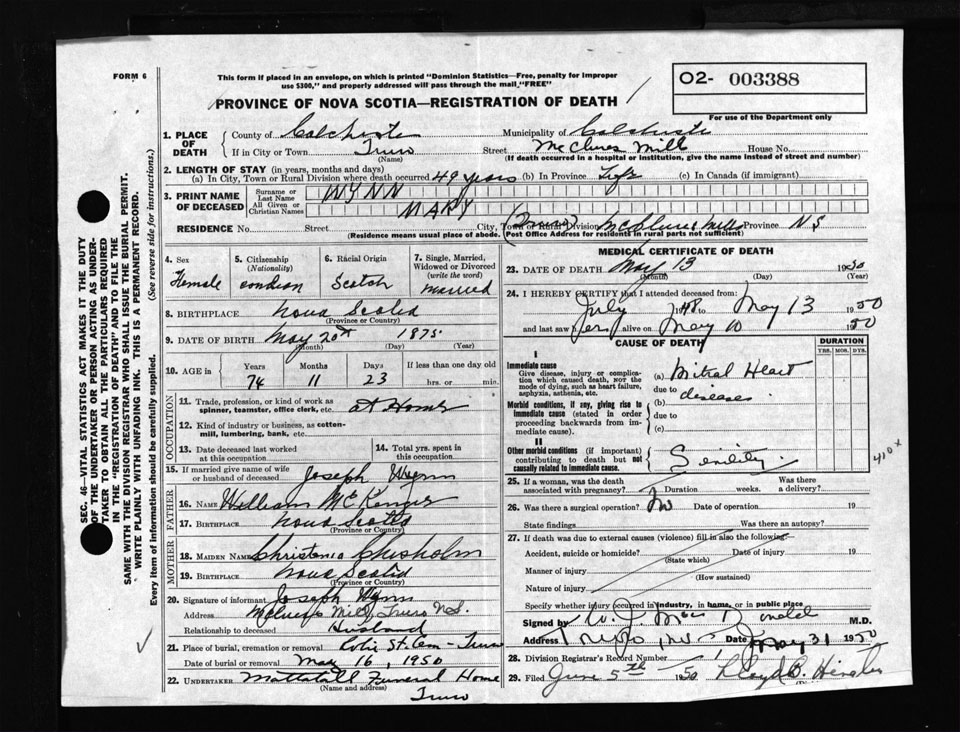 FORM 6
This form if placed in an envelope, on which is printed "Dominion Statistics—Free, penalty for improper
use $300," and properly addressed will pass through the mail "FREE"
O2- 003388
For use of the Department only
PROVINCE OF NOVA SCOTIA—REGISTRATION OF DEATH
SEC. 46—VITAL STATISTICS ACT MAKES IT THE DUTY
OF THE UNDERTAKER OR PERSON ACTING AS UNDER-
TAKER TO OBTAIN ALL THE PARTICULARS REQUIRED
IN THE "REGISTRATION OF DEATH" AND TO FILE THE
SAME WITH THE DIVISION REGISTRAR WHO SHALL ISSUE THE BURIAL PERMIT.
WRITE PLAINLY WITH UNFADING INK. THIS IS A PERMANENT RECORD.
Every item of information should be carefully supplied. (See reverse side for instructions.)
1. PLACE OF DEATH
County of Colchester Municipality of Colchester
If in City or Town Truro Street McClures Mills House No.
(Name) (If death occurred in a hospital or institution, give the name instead of street and number)
2. LENGTH OF STAY (in years, months and days)
(a) In City, Town or Rural Division where death occurred 49 years (b) In Province Life (c) In Canada (if immigrant)
3. PRINT NAME OF DECEASED
Surname or Last Name WYNN
All Given or Christian Names MARY
RESIDENCE No. Street City, Town or Rural Division (Truro) McClures Mills Province N S
(Residence means usual place of abode. Post Office Address for residents in rural parts not sufficient)
4. Sex 5. Citizenship (Nationality) 6. Racial Origin 7. Single, Married, Widowed or Divorced (write the word)
Female Scotch married
8. BIRTHPLACE Nova Scotia
(Province or Country)
9. DATE OF BIRTH May 20th 1875
(Month) (Day) (Year)
10. AGE in Years Months Days If less than one day old
74 11 23 hrs. or min.
OCCUPATION
11. Trade, profession, or kind of work as spinner, teamster, office clerk, etc. at Home
12. Kind of industry or business, as cotton-mill, lumbering, bank, etc.
13. Date deceased last worked at this occupation 14. Total yrs. spent in this occupation
15. If married give name of wife or husband of deceased Joseph Wynn
FATHER
16. NAME William
17. BIRTHPLACE Nova Scotia
(Province or Country)
MOTHER
18. MAIDEN NAME Christena Chisholm
19. BIRTHPLACE Nova Scotia
(Province or Country)
20. Signature of informant Joseph Wynn
Address McClures Mills, Truro N.S.
Relationship to deceased Husband
21. Place of burial, cremation or removal St. Cem - Truro
Date of burial or removal May 16, 1950
22. UNDERTAKER Mattatall Funeral Home
(Name and address) Truro
MEDICAL CERTIFICATE OF DEATH
23. DATE OF DEATH May 13 1950
(Month) (Day) (Year)
24. I HEREBY CERTIFY that I attended deceased from:
July 1948 to May 13 1950
and last saw her alive on May 10 1950
CAUSE OF DEATH DURATION
YRS. MOS. DYS.
I
Immediate cause
Give disease, injury or complication which caused death, not the mode of dying, such as heart failure, asphyxia, asthenia, etc.
(a) Mitral Heart
due to diseases
Morbid conditions, if any, giving rise to immediate cause (stated in order proceeding backwards from immediate cause).
(b)
due to
(c)
II
Other morbid conditions (if important) contributing to death but not causally related to immediate cause.
Senility
410 x
25. If a woman, was the death associated with pregnancy? Duration weeks. Was there a delivery?
26. Was there a surgical operation? No Date of operation 19
State findings Was there an autopsy?
27. If death was due to external causes (violence) fill in also the following
Accident, suicide or homicide? Date of injury 19
(State which)
Manner of injury
(How sustained)
Nature of injury
Specify whether injury occurred in industry, in home, or in public place
Signed by W. J. MacDonald M.D.
Address Truro, N.S. Date May 31 1950
28. Division Registrar's Record Number
29. Filed June 5th 1950 Lloyd B.